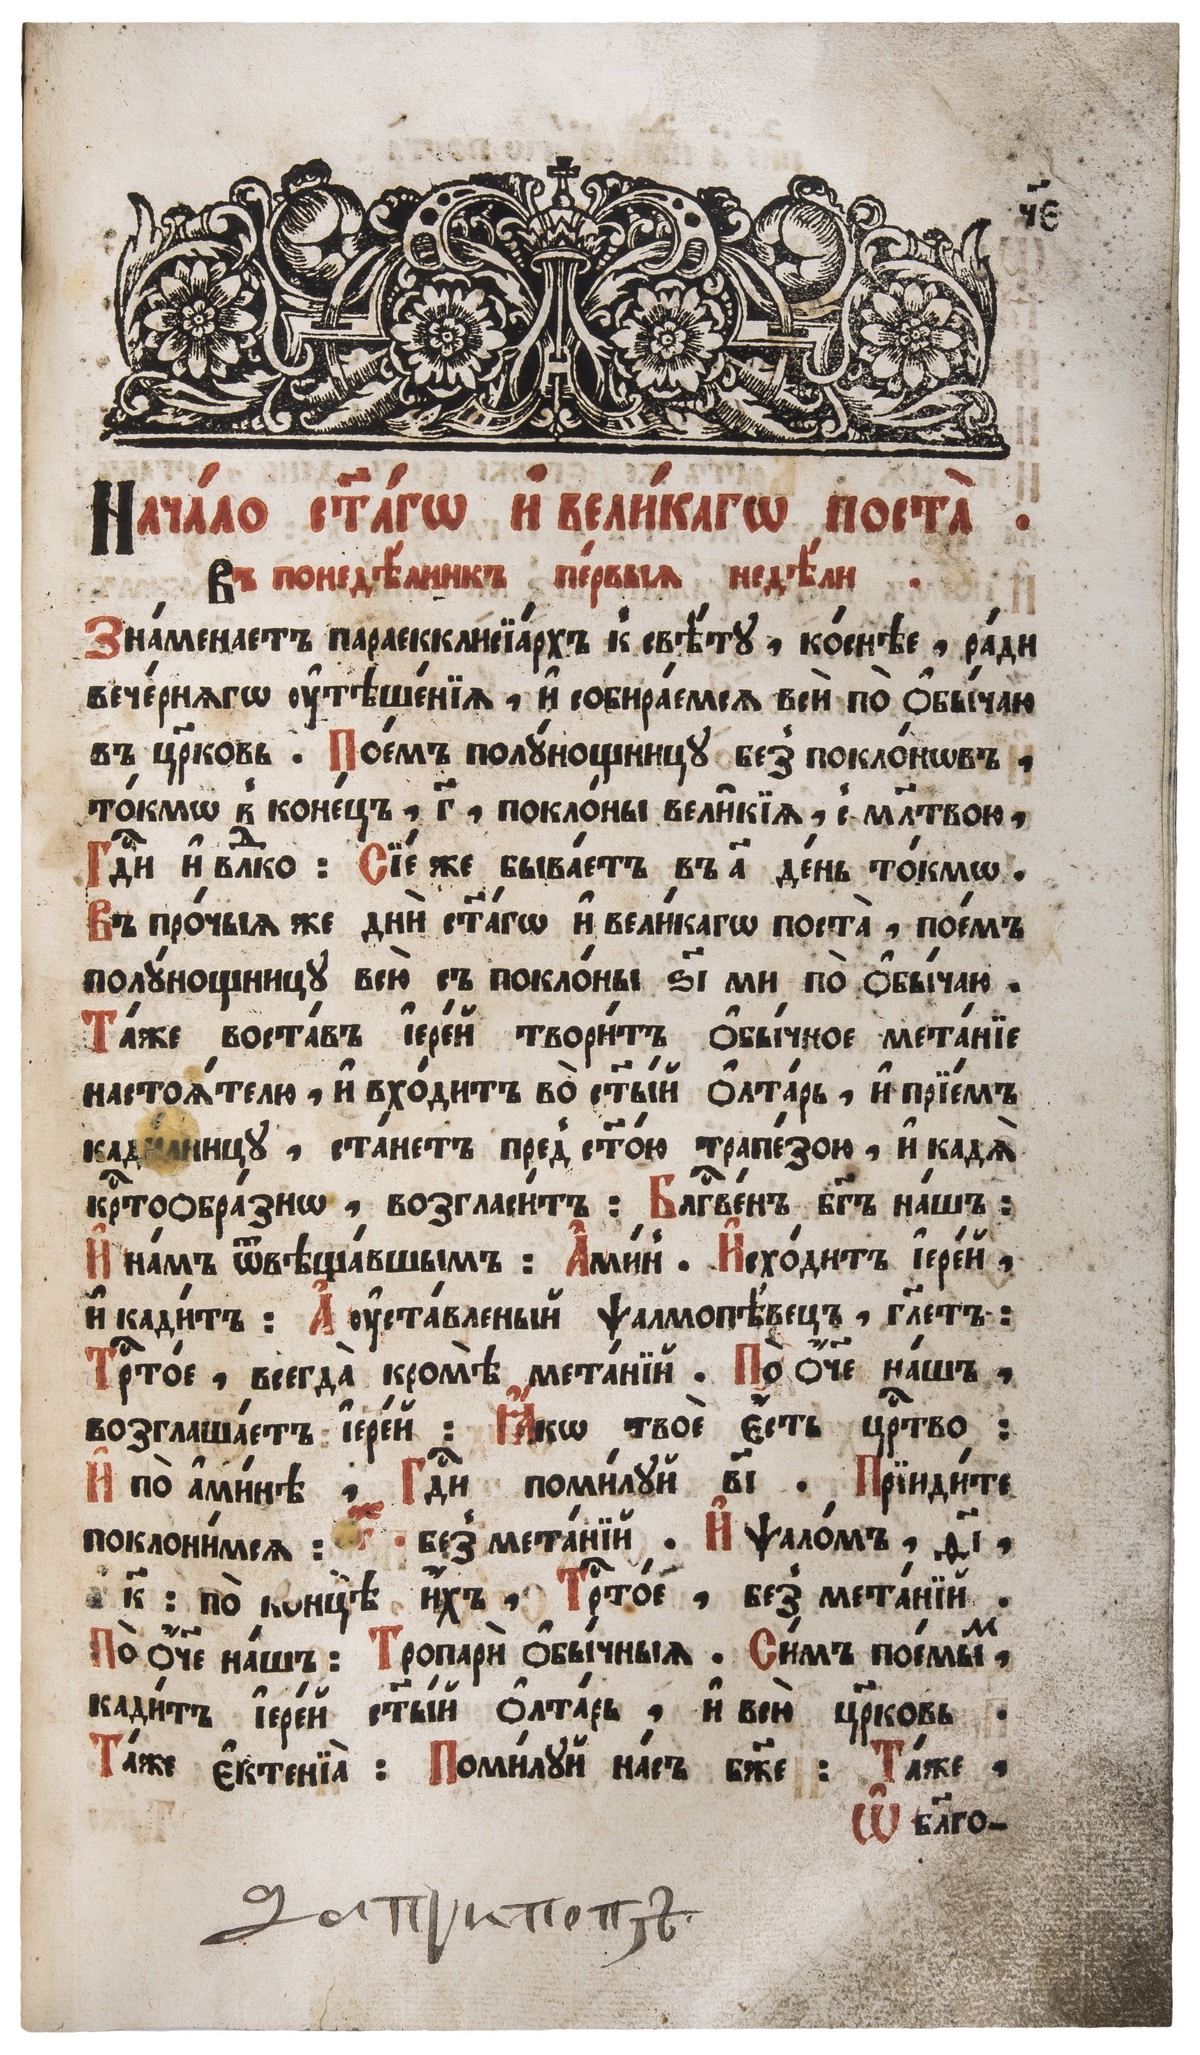 ч҃є
Нача́ло ст҃а́гѡ и҆ вели́кагѡ поста̀ .
Въ понедѣ́лникъ пе́рвыѧ недѣ́ли .
Зна́менаетъ параекклисїа́рхъ к̾ свѣ́тꙋ , ко́снѣе , ра́ди
вече́рнѧгѡ ᲂу҆тѣше́нїѧ , и҆ собира́емсѧ всѝ по̀ ѻ҆бы́чаю
въ цр҃ковь . Пое́мъ полꙋ́нощницꙋ без̾ покло́нѡвъ ,
то́кмѡ в̾ коне́цъ , г҃ , покло́ны вели̑кїѧ , с̾ мл҃твою ,
Гдⷭ҇и и҆ влⷣко : Сїе́ же быва́етъ въ а҃ де́нь то́кмѡ .
Въ про́чыѧ же днѝ ст҃а́гѡ и҆ вели́кагѡ поста̀ , пое́мъ
полꙋ́нощницꙋ всю̀ съ покло́ны ѕ҃і ми по̀ ѻ҆бы́чаю .
Та́же воста́въ і҆ере́й твори́тъ ѻ҆бы́чное мета́нїе
настоѧ́телю , и҆ вхо́дитъ во̀ ст҃ы́й ѻ҆лта́рь , и҆ прїе́мъ
кади́лницꙋ , ста́нетъ пред̾ ст҃о́ю трапе́зою , и҆ кадѧ̀
крⷭ҇тоѻбра́знѡ , возгласи́тъ : Блгⷭ҇ве́нъ бг҃ъ на́шъ :
И҆ на́мъ ѿвѣща́вшымъ : А҆ми́н̾ . И҆схо́дитъ і҆ере́й ,
и҆ кади́тъ : А҆ ᲂу҆ста́вленый ѱалмопѣ́вецъ , гл҃етъ :
Трⷭ҇то́е , всегда̀ кро́мѣ мета́нїй . По̀ ѻ҆́ч҃е на́шъ ,
возглаша́етъ і҆ере́й : Ꙗ҆́кѡ твоѐ є҆́сть црⷭ҇тво :
И҆ по̀ а҆ми́нѣ , Гдⷭ҇и поми́лꙋй в҃і . Прїиди́те
поклони́мсѧ : г҃ . без̾ мета́нїй . И҆ ѱало́мъ , д҃і ,
к҃ : по̀ концѣ̀ и҆́хъ , Трⷭ҇то́е , без̾ мета́нїй .
По̀ ѻ҆́ч҃е на́шъ : Тропарѝ ѻ҆бы́чныѧ . Си́мъ пое́мыⷨ ,
кади́тъ і҆ере́й ст҃ы́й ѻ҆лта́рь , и҆ всю̀ цр҃ковь .
Та́же є҆ктенїа̀ : Поми́лꙋй на́съ бж҃е : Та́же ,
Ѡ҆ бл҃го-